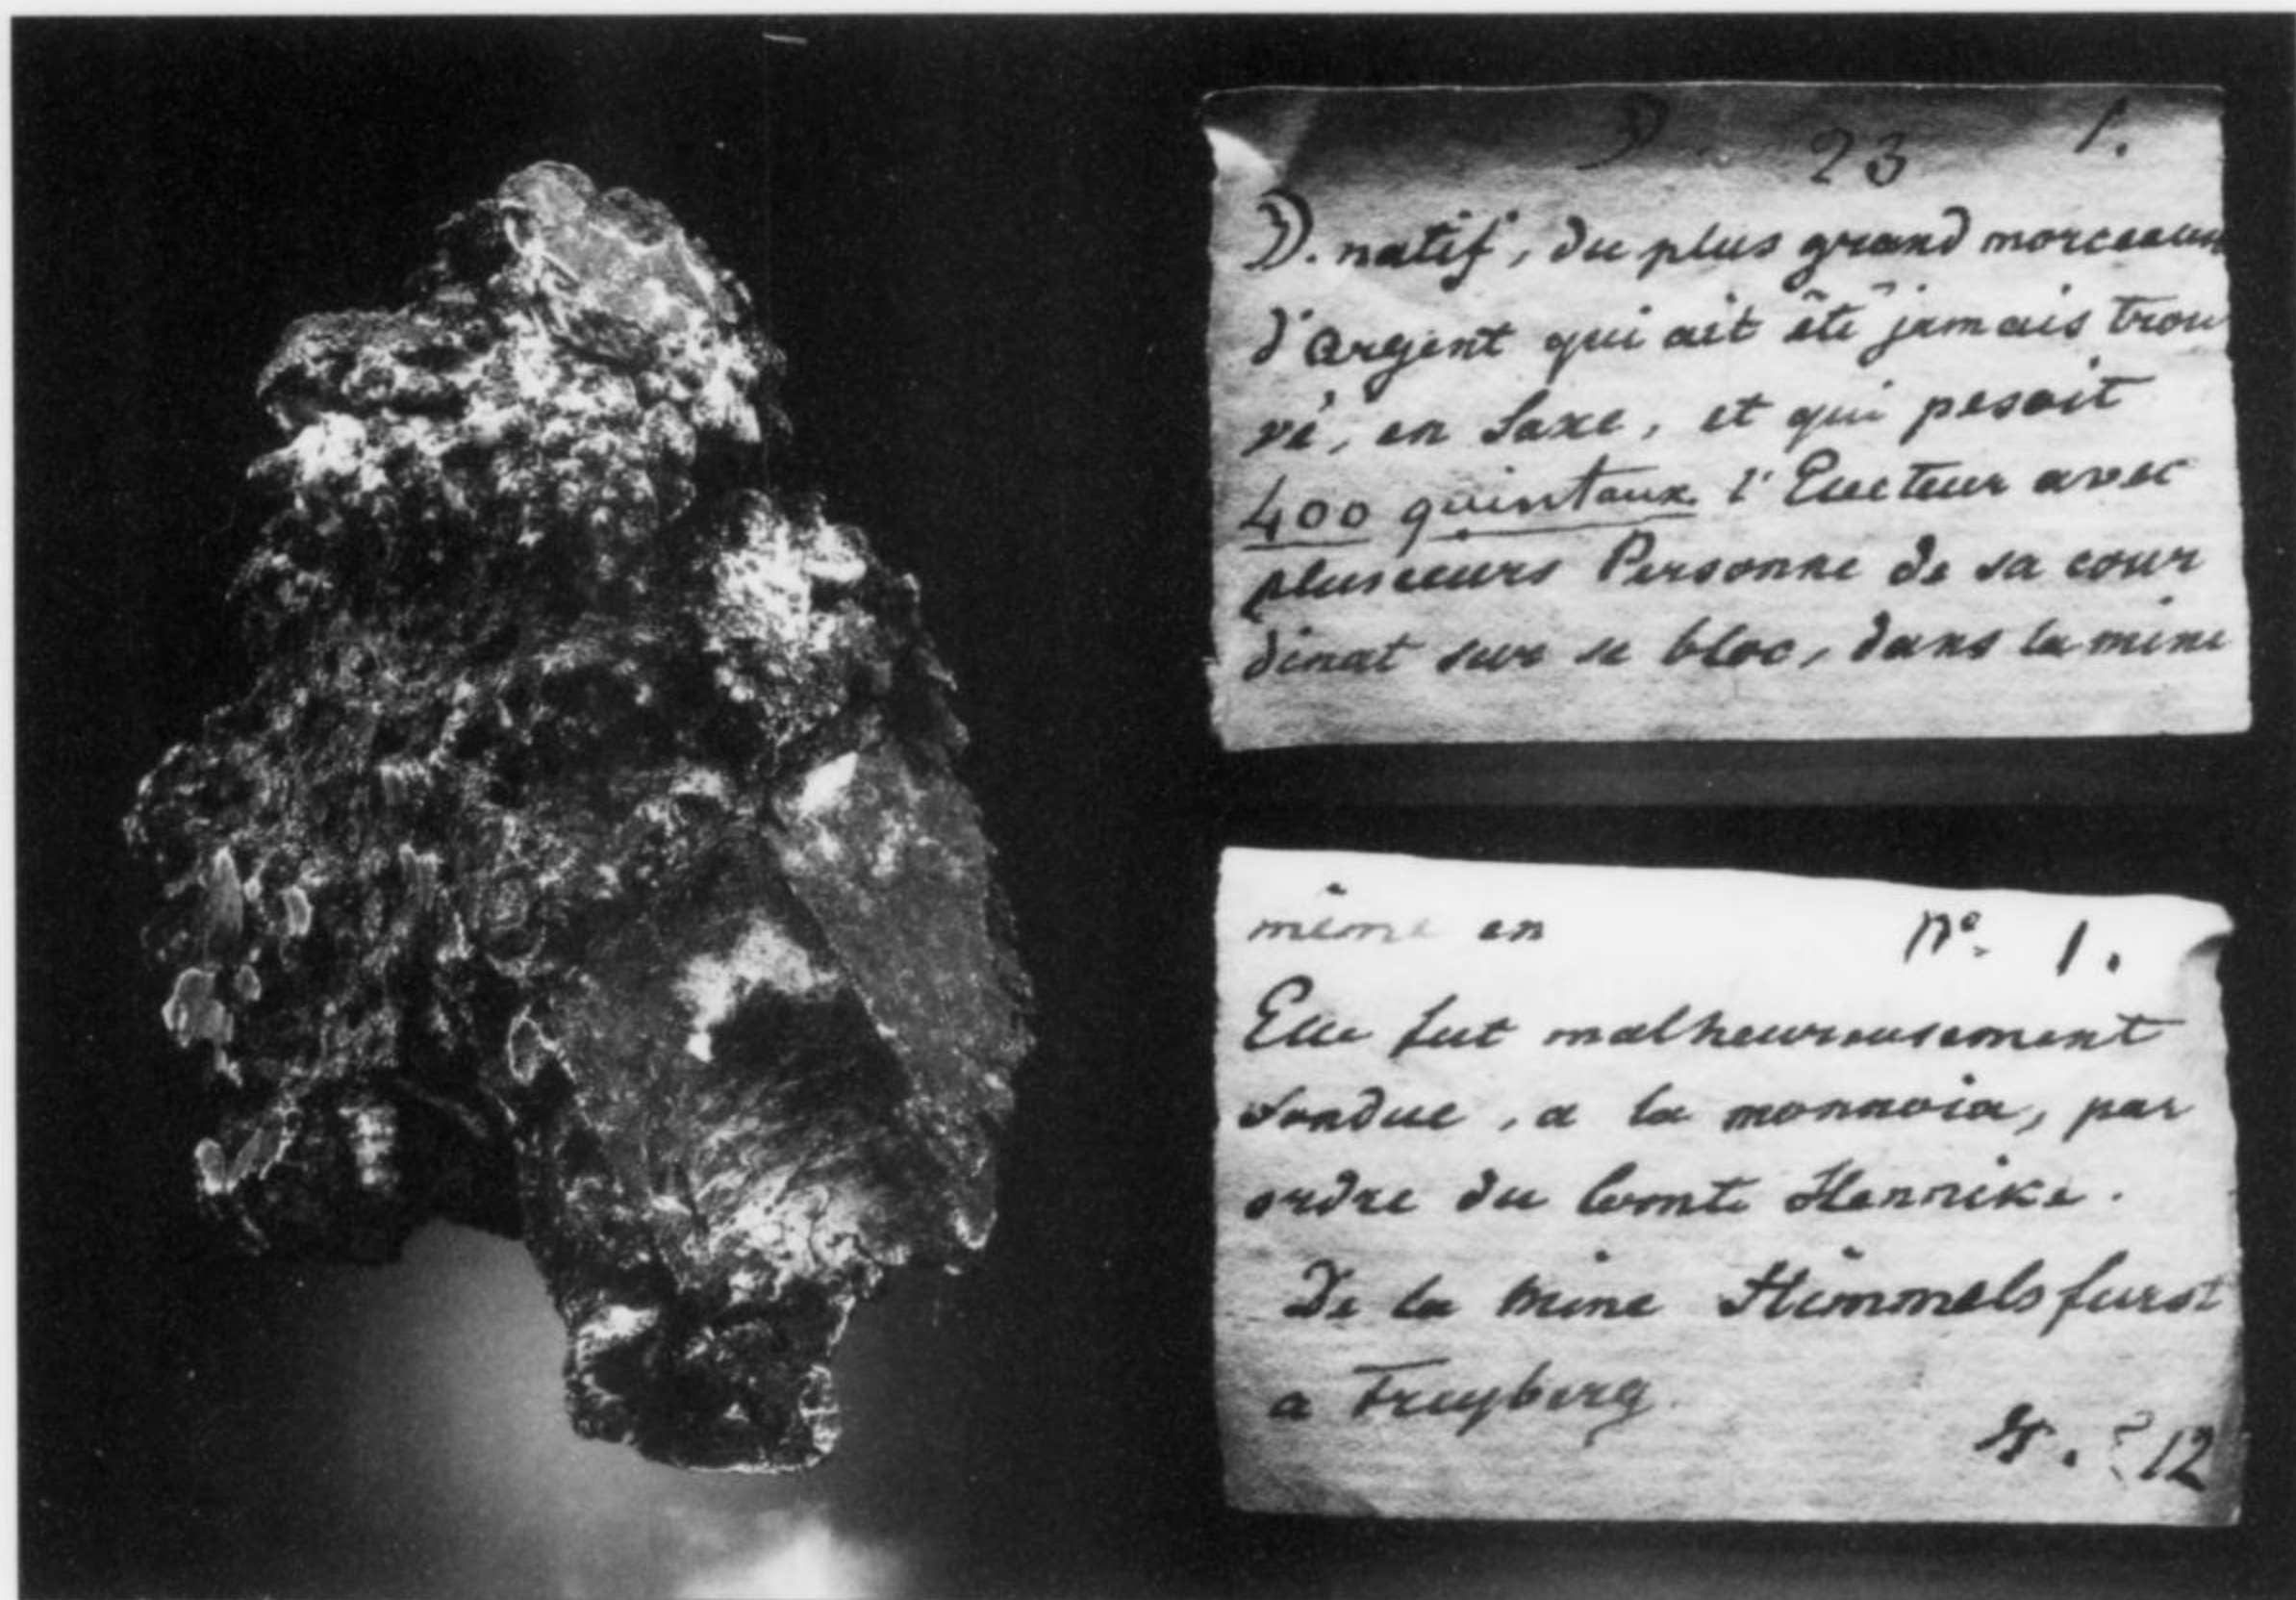 23 1.
D. natif, du plus grand morceau
d'argent qui ait êtê jamais trou
vé, en Saxe, et qui pesoit
400 quintaux l'Electeur avec
plusieurs Personne de sa cour
dinat sur se bloc, dans la mine
même en No. 1.
Elle fut malheureusement
fondue, a la monnoie, par
ordre du Comte Hennike.
De la mine Himmelsfurst
a Freyberg.
12